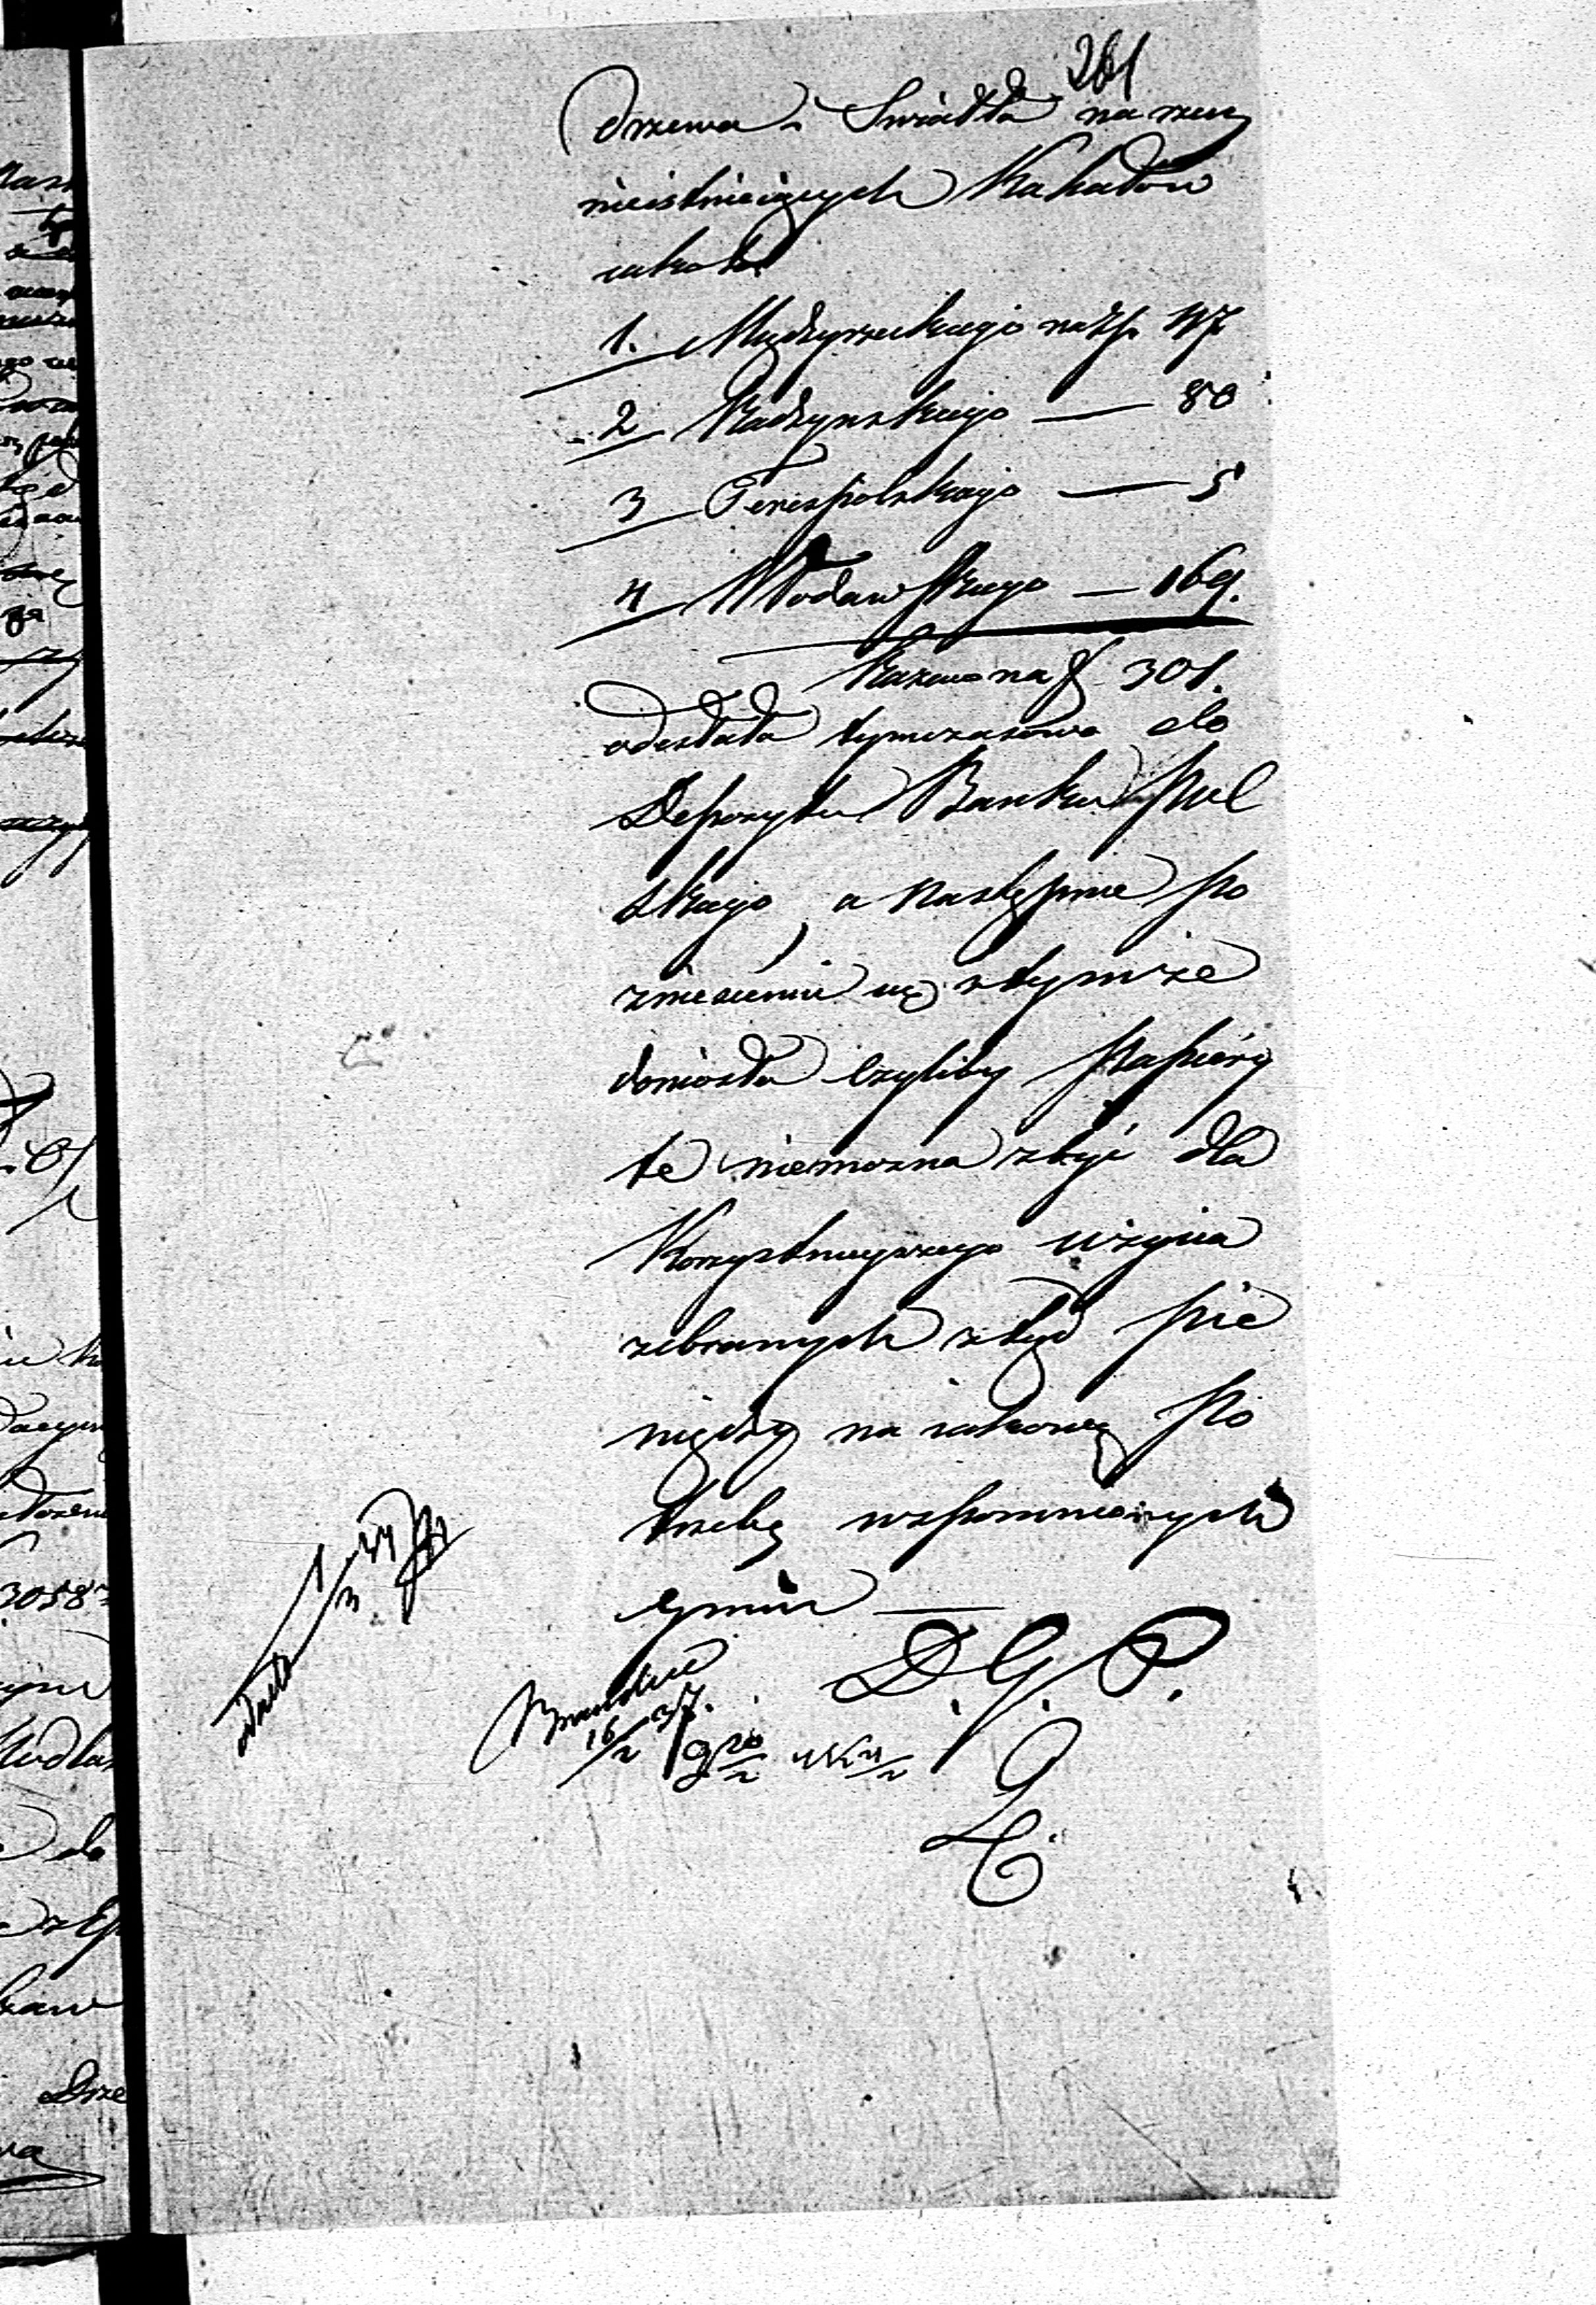 261
drzewa i Swiatła na rzecz
nieistnieiących Kahałów
iakoto
1. Międzyrzeckiego na Zł. 47
2 Radzynskiego — 80
3 Terespolskiego — 5
4 Włodawskiego — 169.
Razem na f 301.
odesłała tymczasowo do
Depozytu Banku Pol
skiego, a następnie po
zniesieniu się z tymże
doniosła czyliby Papiery
te niemożna zbyć dla
Korzystnieyszego użycia
zebranych ztąd pie
niędzy na iakową po
trzebę wspomnionych
gmin —
D. G. P.
16/2 37.